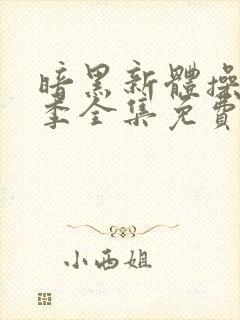 暗黑新體操
季全集免費
小西姐